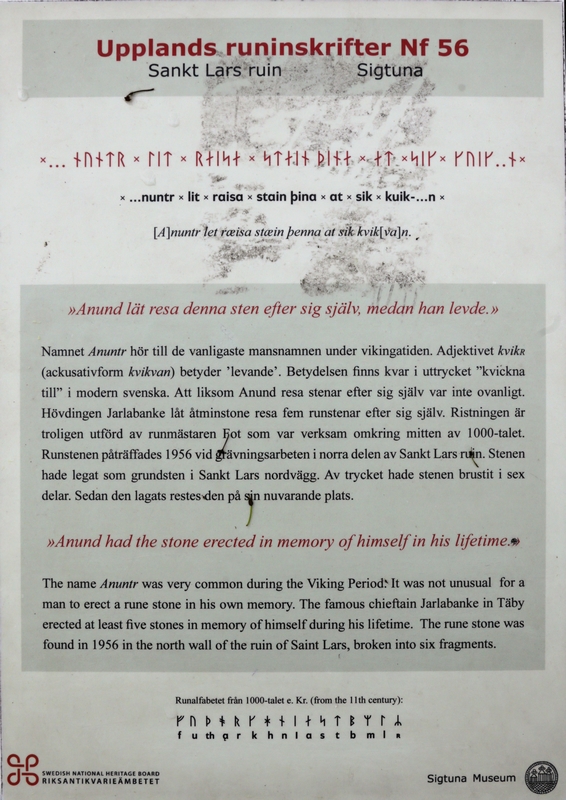 Upplands runinskrifter Nf 56
Sankt Lars ruin Sigtuna
×... ᚾᚢᚾᛏᚱ × ᛚᛁᛏ × ᚱᛅᛁᛋᛅ × ᛋᛏᛅᛁᚾ ᚦᛁᚾᛅ × ᛅᛏ ×ᛋᛁᚴ× ᚴᚢᛁᚴ..ᚾ×
× ...nuntr × lit × raisa × stain þina × at × sik × kuik-...n ×
[A]nuntr let ræisa stæin þenna at sik kvik[va]n.
»Anund lät resa denna sten efter sig själv, medan han levde.»
Namnet Anuntr hör till de vanligaste mansnamnen under vikingatiden. Adjektivet kvikʀ
(ackusativform kvikvan) betyder ’levande’. Betydelsen finns kvar i uttrycket ”kvickna
till” i modern svenska. Att liksom Anund resa stenar efter sig själv var inte ovanligt.
Hövdingen Jarlabanke låt åtminstone resa fem runstenar efter sig själv. Ristningen är
troligen utförd av runmästaren Fot som var verksam omkring mitten av 1000-talet.
Runstenen påträffades 1956 vid grävningsarbeten i norra delen av Sankt Lars ruin. Stenen
hade legat som grundsten i Sankt Lars nordvägg. Av trycket hade stenen brustit i sex
delar. Sedan den lagats restes den på sin nuvarande plats.
»Anund had the stone erected in memory of himself in his lifetime.»
The name Anuntr was very common during the Viking Period. It was not unusual for a
man to erect a rune stone in his own memory. The famous chieftain Jarlabanke in Täby
erected at least five stones in memory of himself during his lifetime. The rune stone was
found in 1956 in the north wall of the ruin of Saint Lars, broken into six fragments.
Runalfabetet från 1000-talet e. Kr. (from the 11th century):
ᚠ ᚢ ᚦ ᚬ ᚱ ᚴ ᚼ ᚾ ᛁ ᛅ ᛋ ᛏ ᛒ ᛘ ᛚ ᛦ
f u th ą r k h n I a s t b m l ʀ
SWEDISH NATIONAL HERITAGE BOARD
RIKSANTIKVARIEÄMBETET
Sigtuna Museum